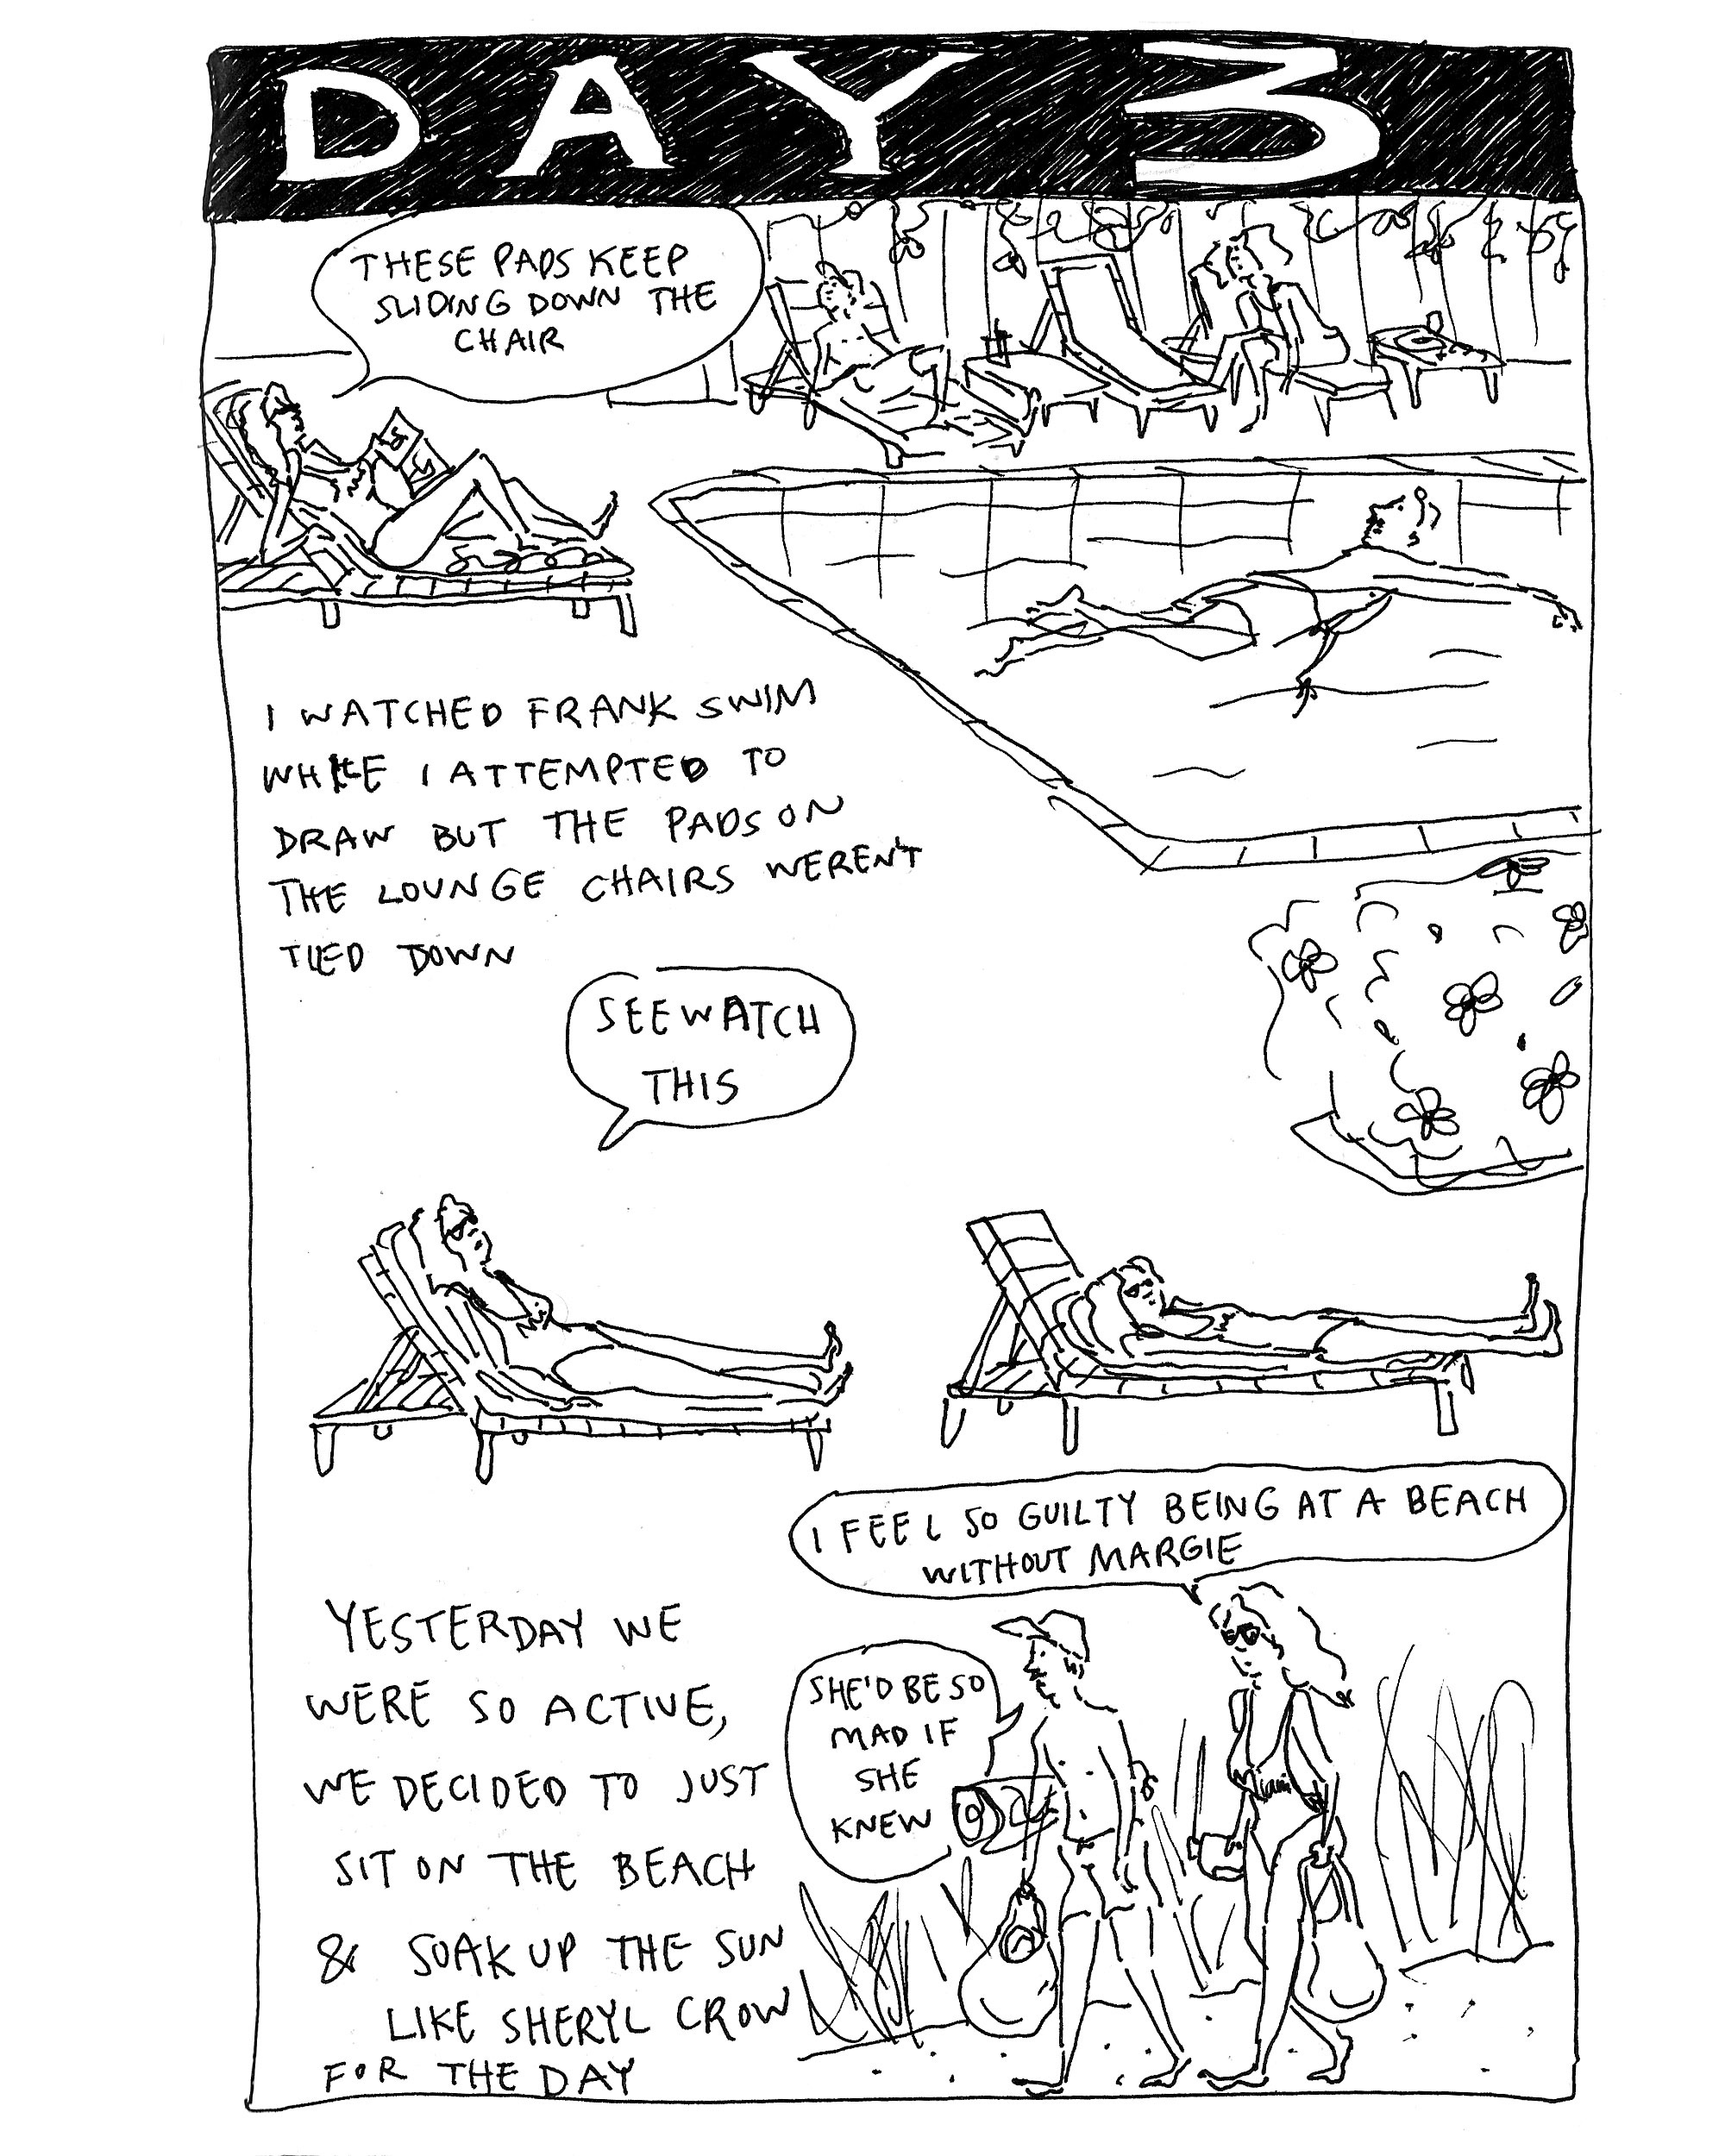 DAY 3
THESE PADS KEEP
SLIDING DOWN THE
CHAIR
I WATCHED FRANK SWIM
WHILE I ATTEMPTED TO
DRAW BUT THE PADS ON
THE LOUNGE CHAIRS WEREN'T
TIED DOWN
SEE WATCH
THIS
I FEEL SO GUILTY BEING AT A BEACH
WITHOUT MARGIE
SHE'D BE SO
MAD IF
SHE
KNEW
Miami
YESTERDAY WE
WERE SO ACTIVE,
WE DECIDED TO JUST
SIT ON THE BEACH
& SOAK UP THE SUN
LIKE SHERYL CROW
FOR THE DAY